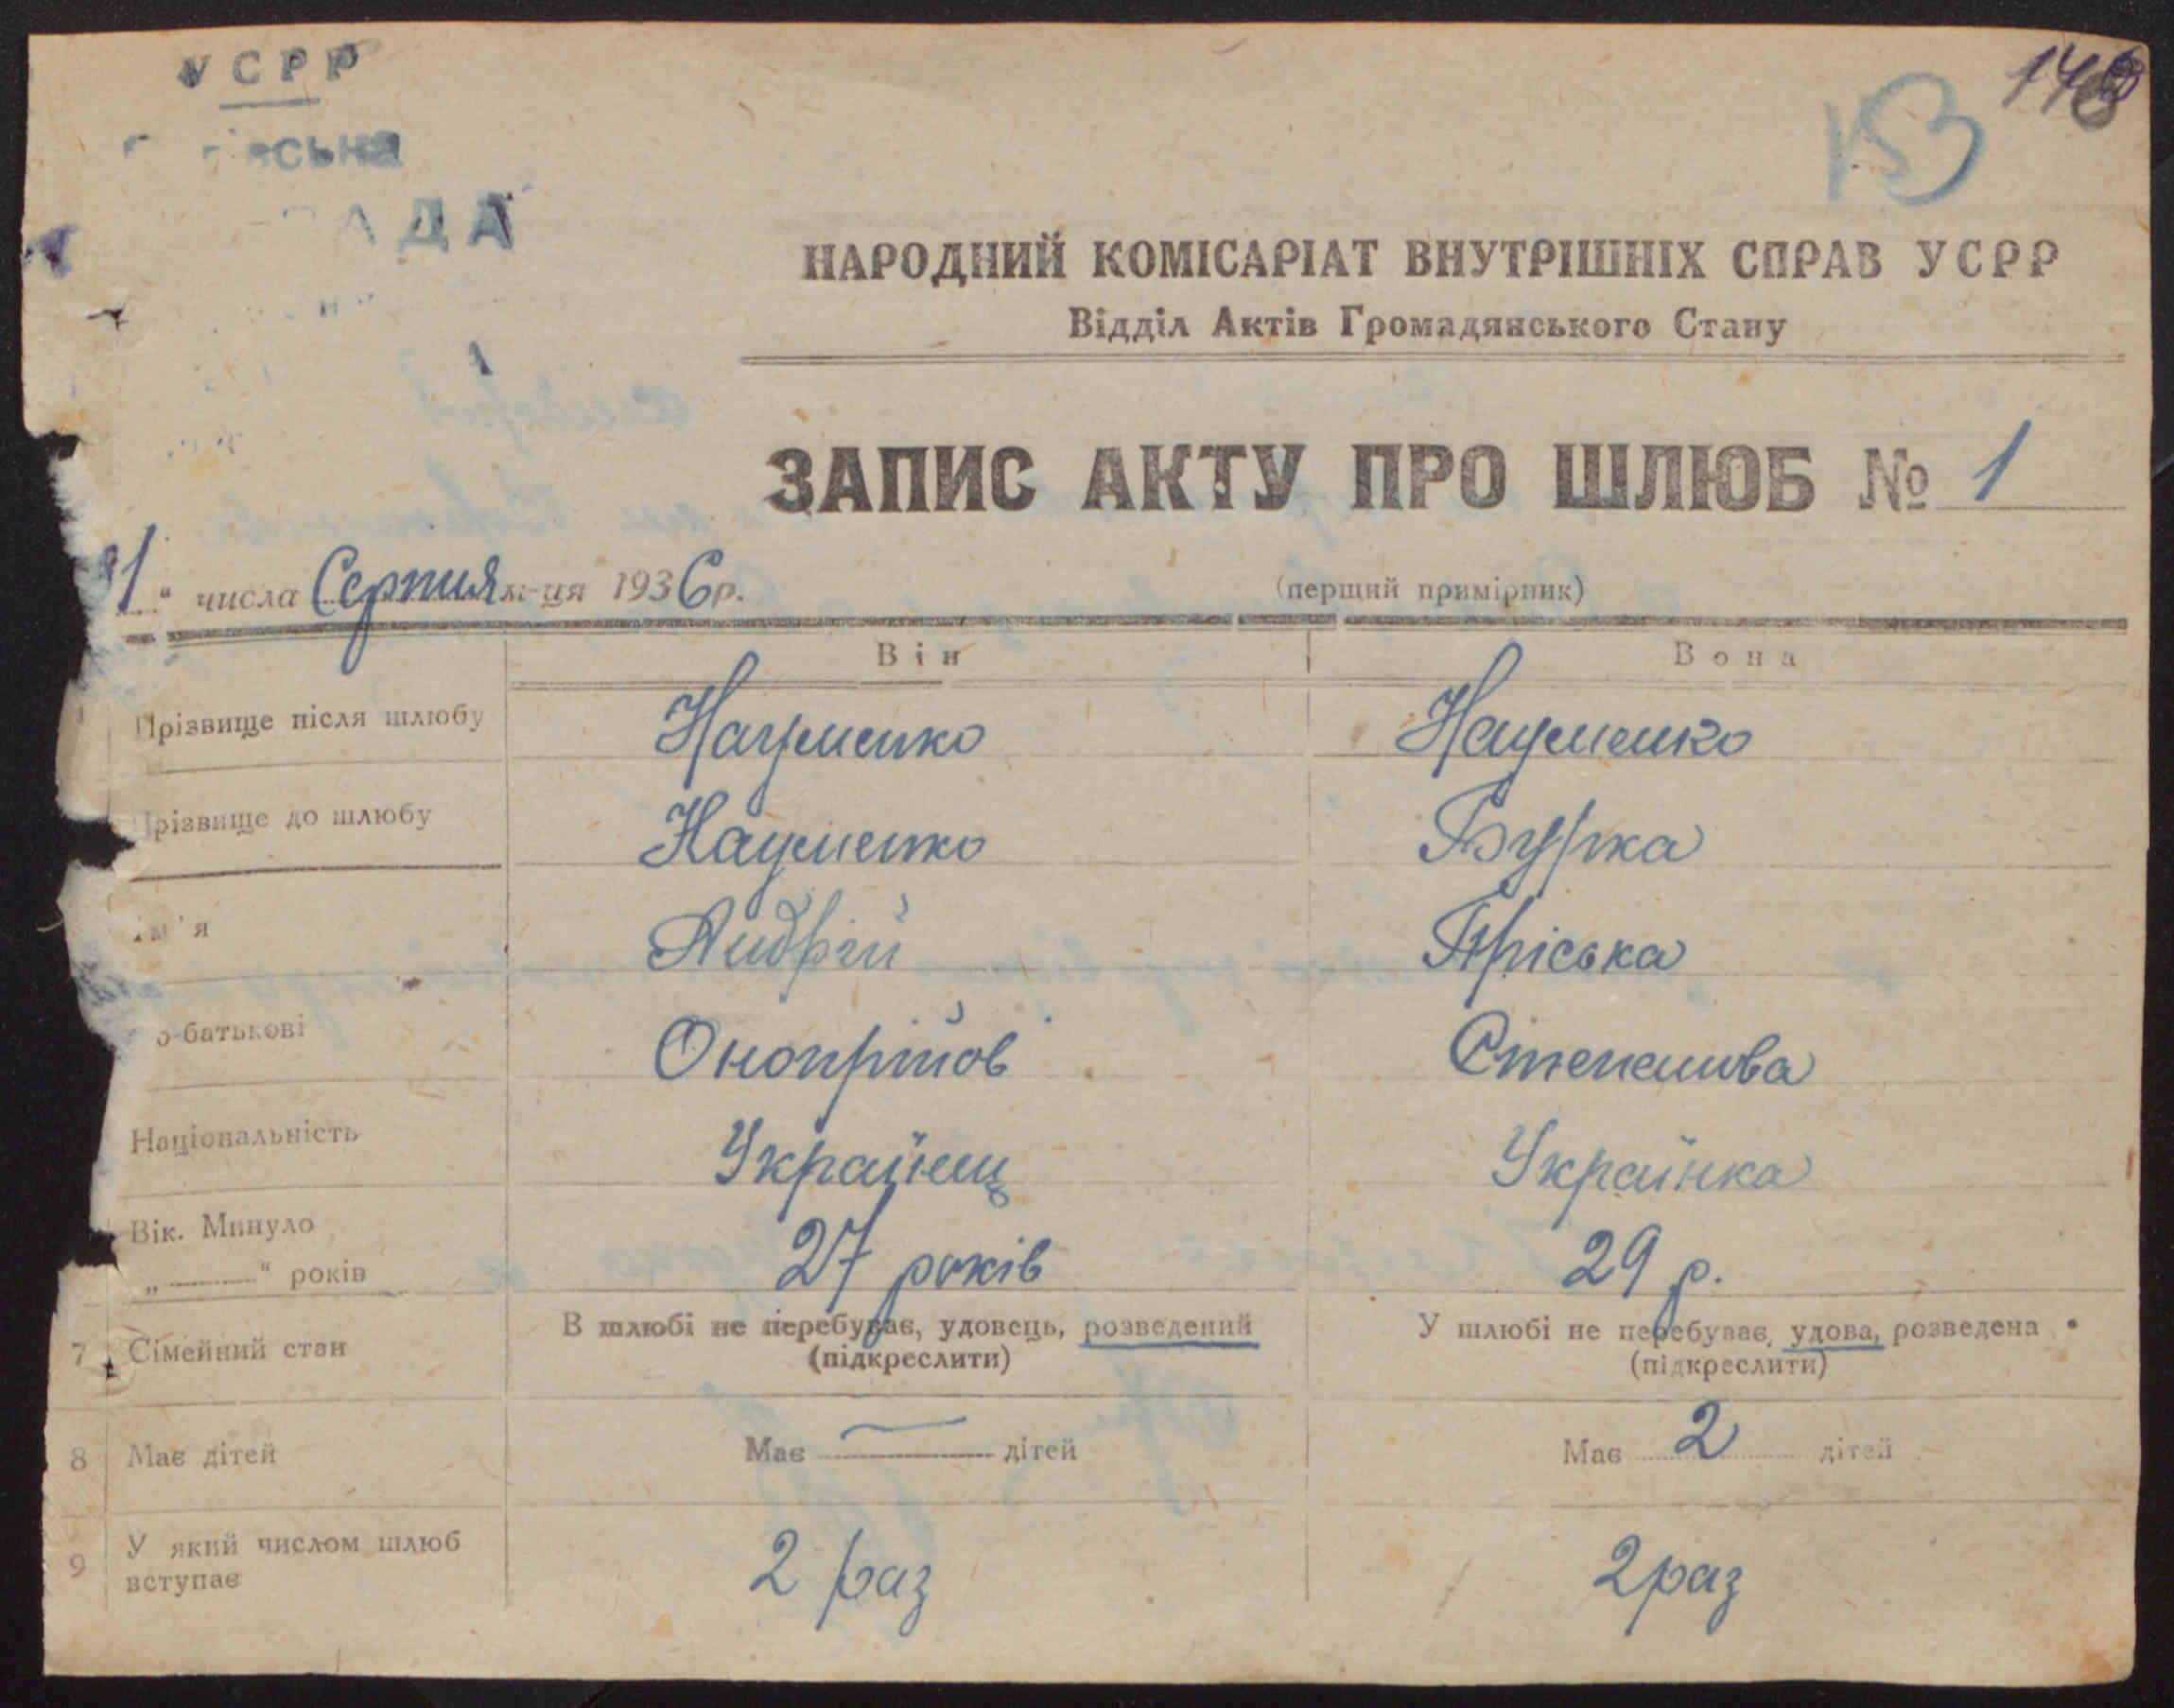 УСРР
153
НАРОДНИЙ КОМІСАРІАТ ВНУТРІШНІХ СПРАВ УСРР
Відділ Актів Громадянського Стану
ЗАПИС АКТУ ПРО ШЛЮБ № 1
1" числа Серпня м-ця 1936 р.
(перший примірник)
Він Вона
Прізвище після шлюбу Науменко Науменко
Прізвище до шлюбу Науменко Бурка
Ім'я Андрій Пріська
о-батькові Онопрійов Степанова
Національність Українец Українка
Вік. Минуло
„ " років 27 років 29 р.
7 Сімейний стан В шлюбі не перебуває, удовець, розведений У шлюбі не перебуває, удова, розведена
(підкреслити) (підкреслити)
8 Має дітей Має — дітей Має 2 дітей
9 У який числом шлюб
вступає 2 раз 2 раз